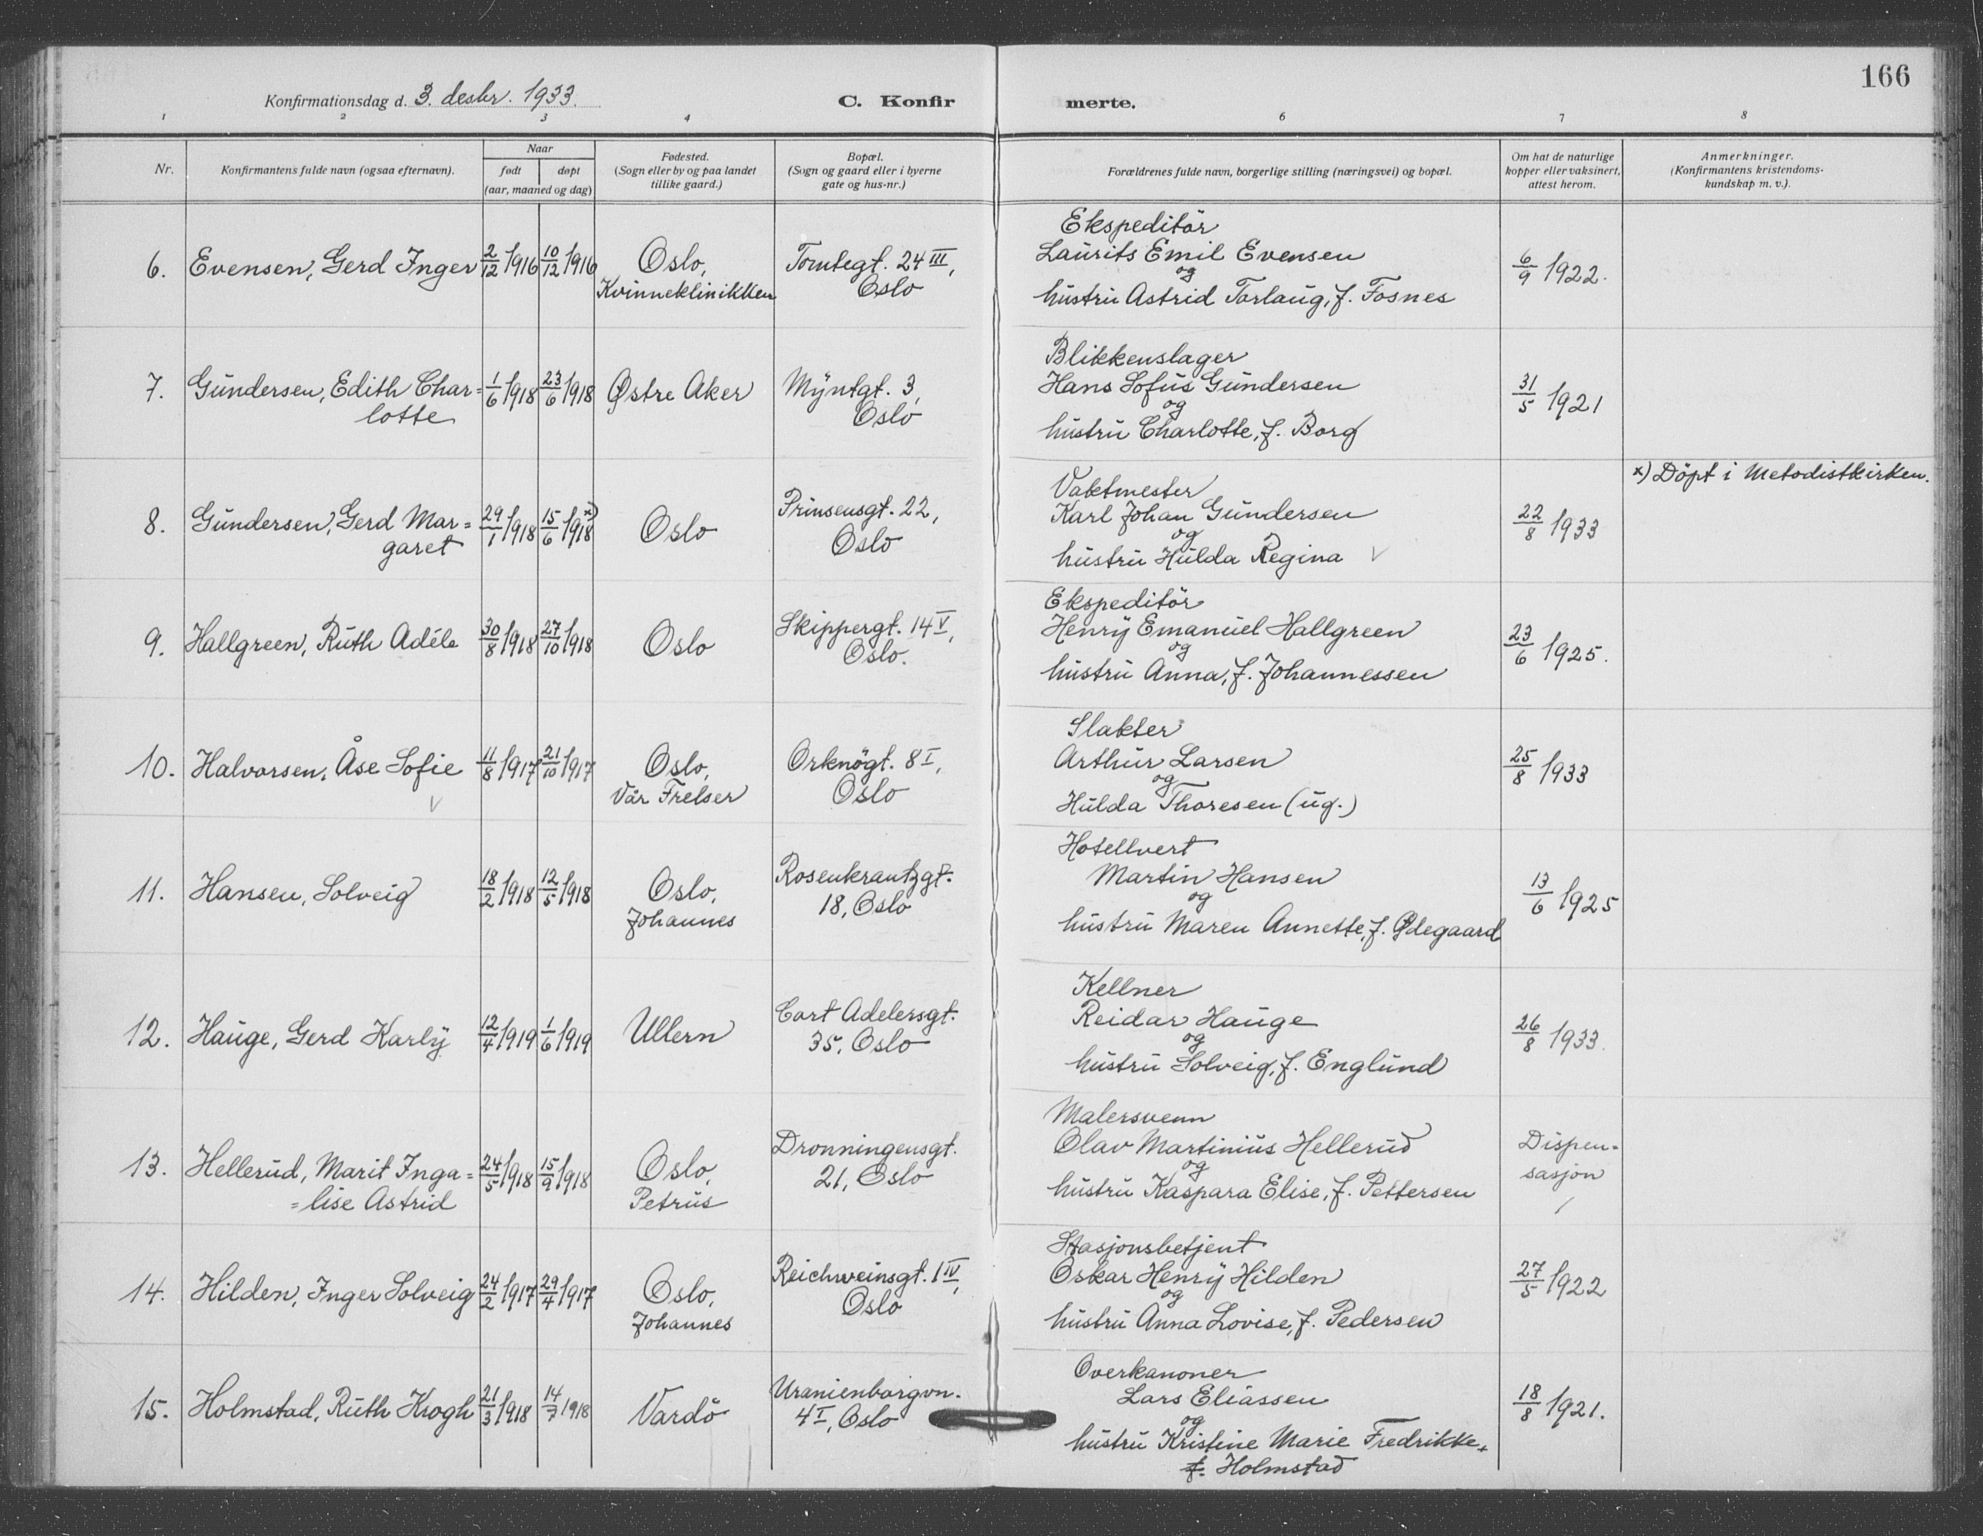 166
Konfirmationsdag d. 3. desbr. 1933.
C. Konfirmerte.
1 2 3 4 6 7 8
Nr.
Konfirmantens fulde navn (ogsaa efternavn).
Naar
født døpt
(aar, maaned og dag)
Fødested.
(Sogn eller by og paa landet
tillike gaard.)
Bopæl.
(Sogn og gaard eller i byerne
gate og hus-nr.)
Forældrenes fulde navn, borgerlige stilling (næringsvei) og bopæl.
Om hat de naturlige
kopper eller vaksinert,
attest herom.
Anmerkninger.
(Konfirmantens kristendoms-
kundskap m. v.).
6. Evensen, Gerd Inger 2/12 1916 10/12 1916
Oslo,
Kvinneklinikken
Tomtegt. 24 III,
Oslo
Ekspeditör
Laurits Emil Evensen
og
hustru Astrid Torlaug, f. Fosnes
6/9 1922.
7. Gundersen, Edith Char=
lotte
1/6 1918 23/6 1918
Østre Aker
Myntgt. 3,
Oslo
Blikkenslager
Hans Sofus Gundersen
og
hustru Charlotte, f. Borg
31/5 1921
8. Gundersen, Gerd Mar=
garet
29/1 1918 15/6 1918 x)
Oslo
Prinsensgt. 22,
Oslo
Vaktmester
Karl Johan Gundersen
og
hustru Hulda Regina
22/8 1933
x) Döpt i Metodistkirken.
9. Hallgreen, Ruth Adéle 30/8 1918 27/10 1918
Oslo
Skippergt. 14 V,
Oslo.
Ekspeditör
Henry Emanuel Hallgreen
og
hustru Anna, f. Johannessen
23/6 1925.
10. Halvorsen, Åse Sofie 11/8 1917 21/10 1917
Oslo,
Vår Frelser
Orknögt. 8 I,
Oslo
Slakter
Arthur Larsen
og
Hulda Thoresen (ug.)
25/8 1933
11. Hansen, Solveig 18/2 1918 12/5 1918
Oslo,
Johannes
Rosenkrantzgt.
18, Oslo
Hotellvert
Martin Hansen
og
hustru Maren Annette, f. Ødegaard
13/6 1925
12. Hauge, Gerd Karly 12/4 1919 1/6 1919
Ullern
Cort Adelersgt.
35, Oslo
Kellner
Reidar Hauge
og
hustru Solveig, f. Englund
26/8 1933.
13. Hellerud, Marit Inga=
=lise Astrid
24/5 1918 15/9 1918
Oslo,
Petrus
Dronningensgt.
21, Oslo
Malersvenn
Olav Martinius Hellerud
og
hustru Kaspara Elise, f. Pettersen
Dispen-
sasjon
14. Hilden, Inger Solveig 24/2 1917 29/4 1917
Oslo,
Johannes
Reichweinsgt. 1 IV,
Oslo
Stasjonsbetjent
Oskar Henry Hilden
og
hustru Anna Lovise, f. Pedersen
27/5 1922
15. Holmstad, Ruth Krogh 21/3 1918 14/7 1918
Vardö
Uranienborgvn.
4 I, Oslo
Overkanoner
Lars Eliassen
og
hustru Kristine Marie Fredrikke,
f. Holmstad
18/8 1921.